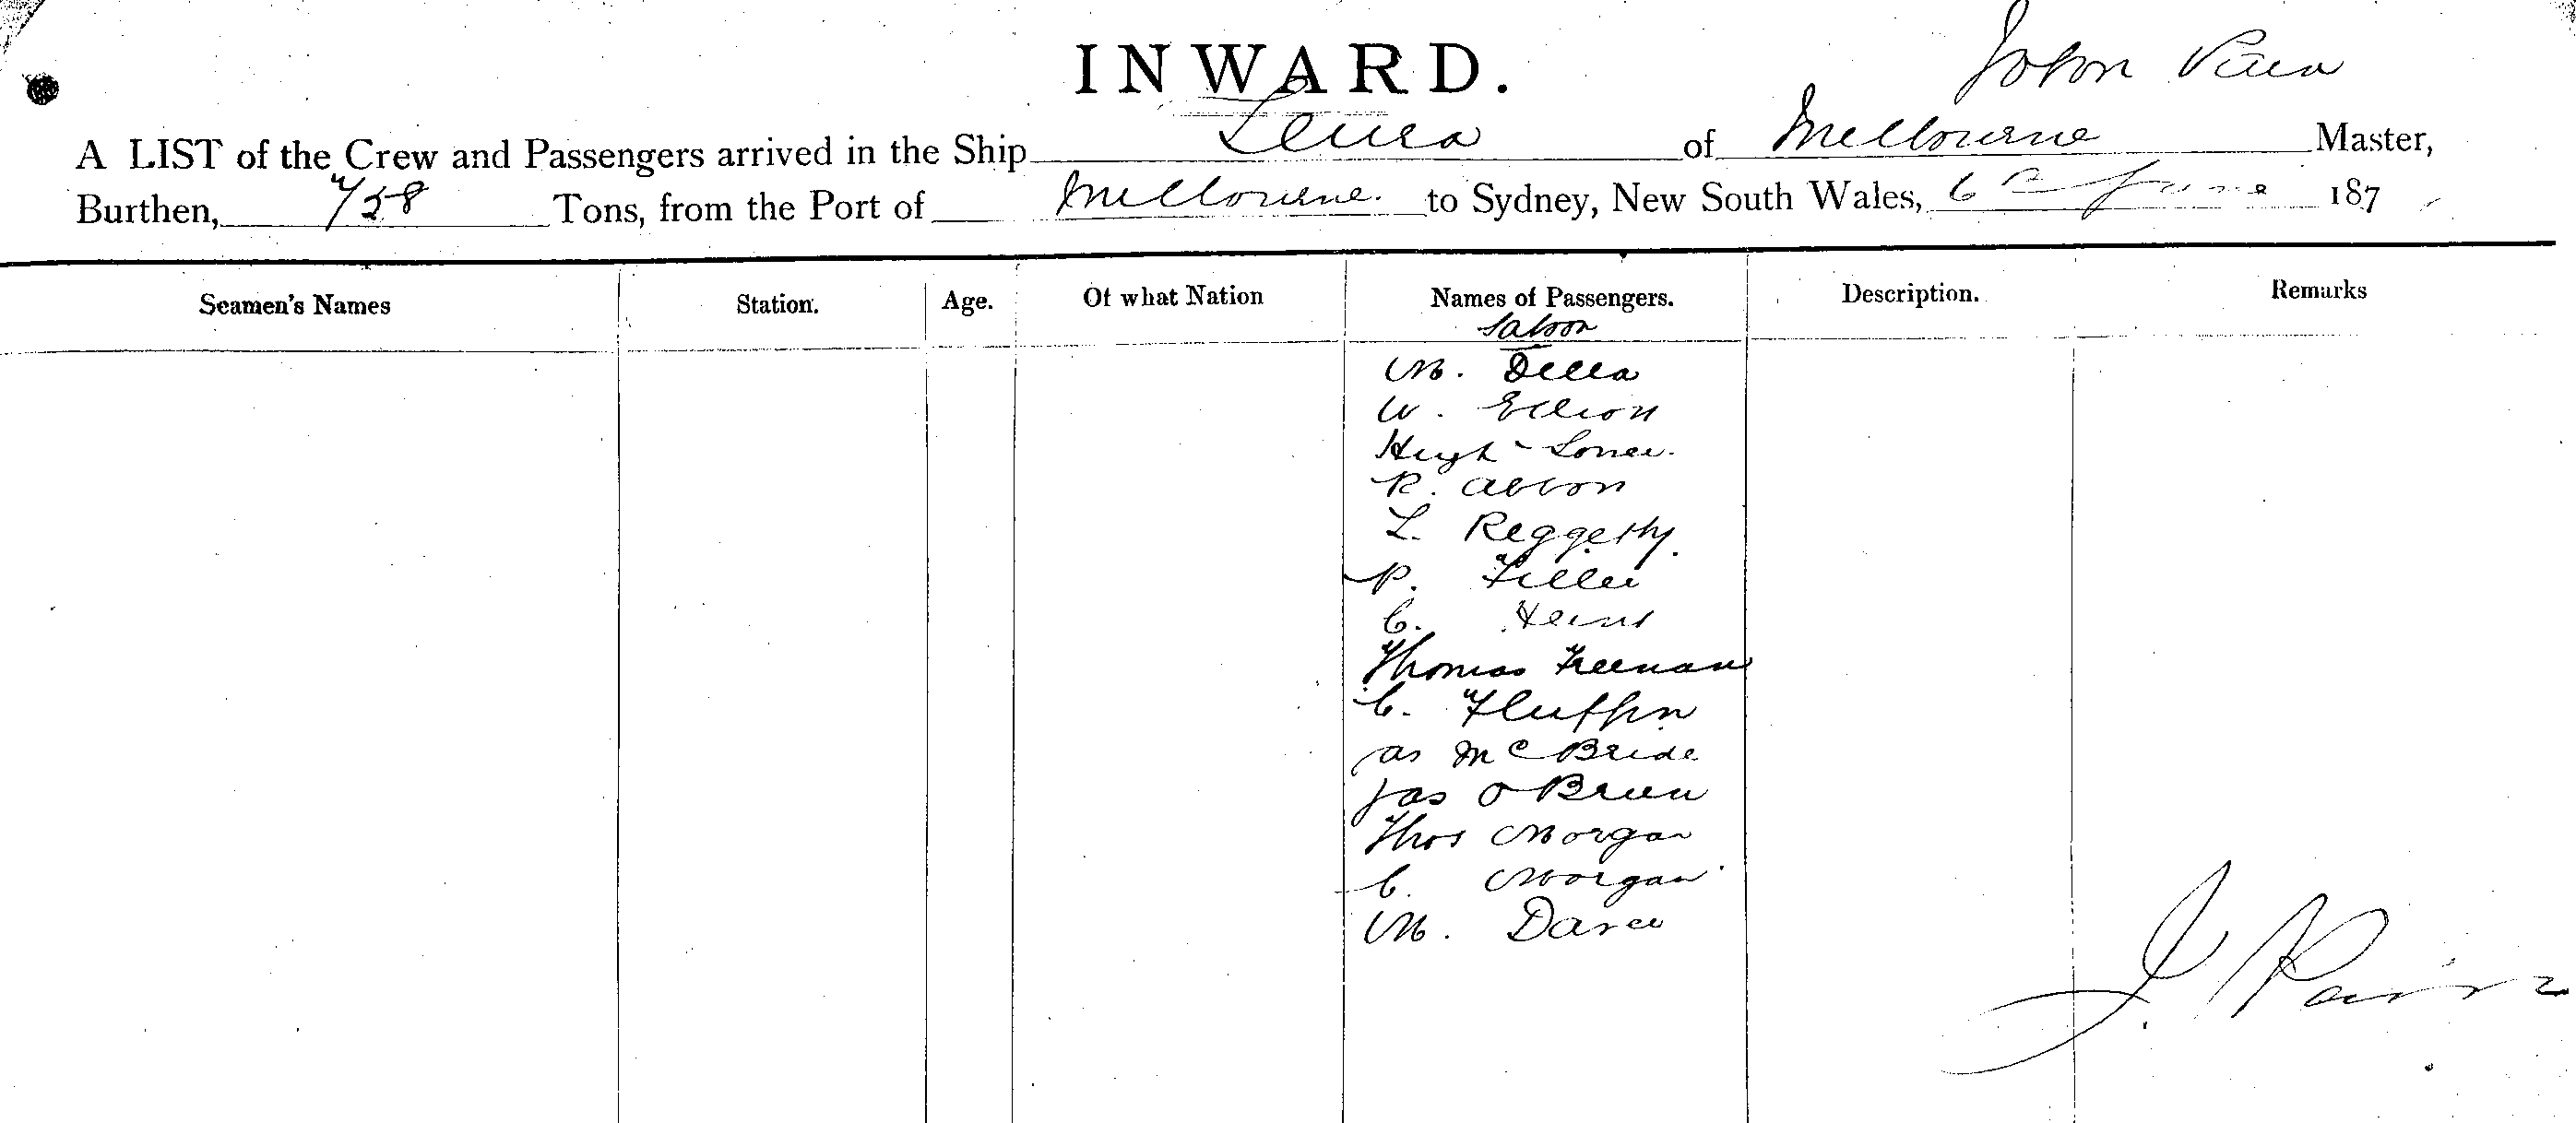 INWARD.
John
A LIST of the Crew and Passengers arrived in the Ship Leura of Melbourne Master,
Burthen, 758 Tons, from the Port of Melbourne. to Sydney, New South Wales, 6th June 187
Seamen's Names Station. Age. Of what Nation Names of Passengers. Description. Remarks
Saloon
M. Della
W.
Hugh
R. Abbon
L. Reggethy.
P.
C.
Thomas Keenan
C. Fluffin
Jas McBride
Jas O Brien
Thos Morgan
C. Morgan
M.
J.